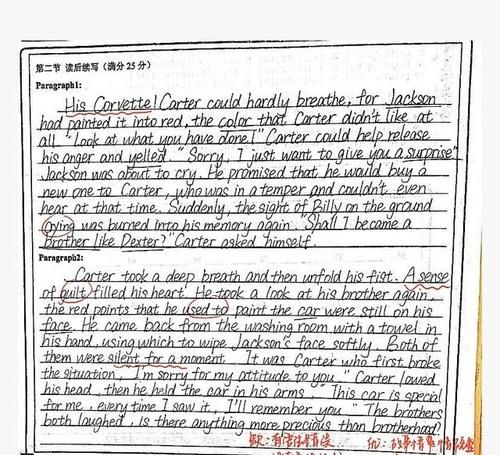 第二节 读后续写（满分 25 分）
Paragraph1:
His Corvette! Carter could hardly breathe, for Jackson
had painted it into red, the color that Carter didn't like at
all. "Look at what you have done!" Carter could help release
his anger and yelled. "Sorry, I just want to give you a surprise"
Jackson was about to cry. He promised that he would buy a
new one to Carter, who was in a temper and couldn't even
hear at that time. Suddenly, the sight of Billy on the ground
crying was burned into his memory again. "Shall I became a
brother like Dexter?" Carter asked himself.
Paragraph2:
Carter took a deep breath and then unfold his fist. A sense
of guilt filled his heart. He took a look at his brother again,
the red points that he used to paint the car were still on his
face. He came back from the washing room with a towel in
his hand, using which to wipe Jackson's face softly. Both of
them were silent for a moment. It was Carter who first broke
the situation, "I'm sorry for my attitude to you." Carter lowed
his head, then he held the car in his arms. "This car is special
for me, every time I saw it, I'll remember you." The brothers
both laughed, is there anything more precious than brotherhood?